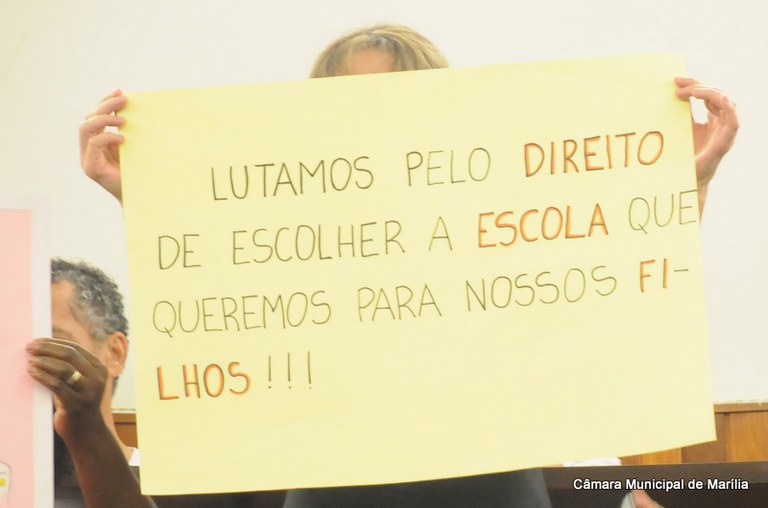 LUTAMOS PELO DIREITO
DE ESCOLHER A ESCOLA QUE
QUEREMOS PARA NOSSOS FI-
LHOS!!!
Câmara Municipal de Marília